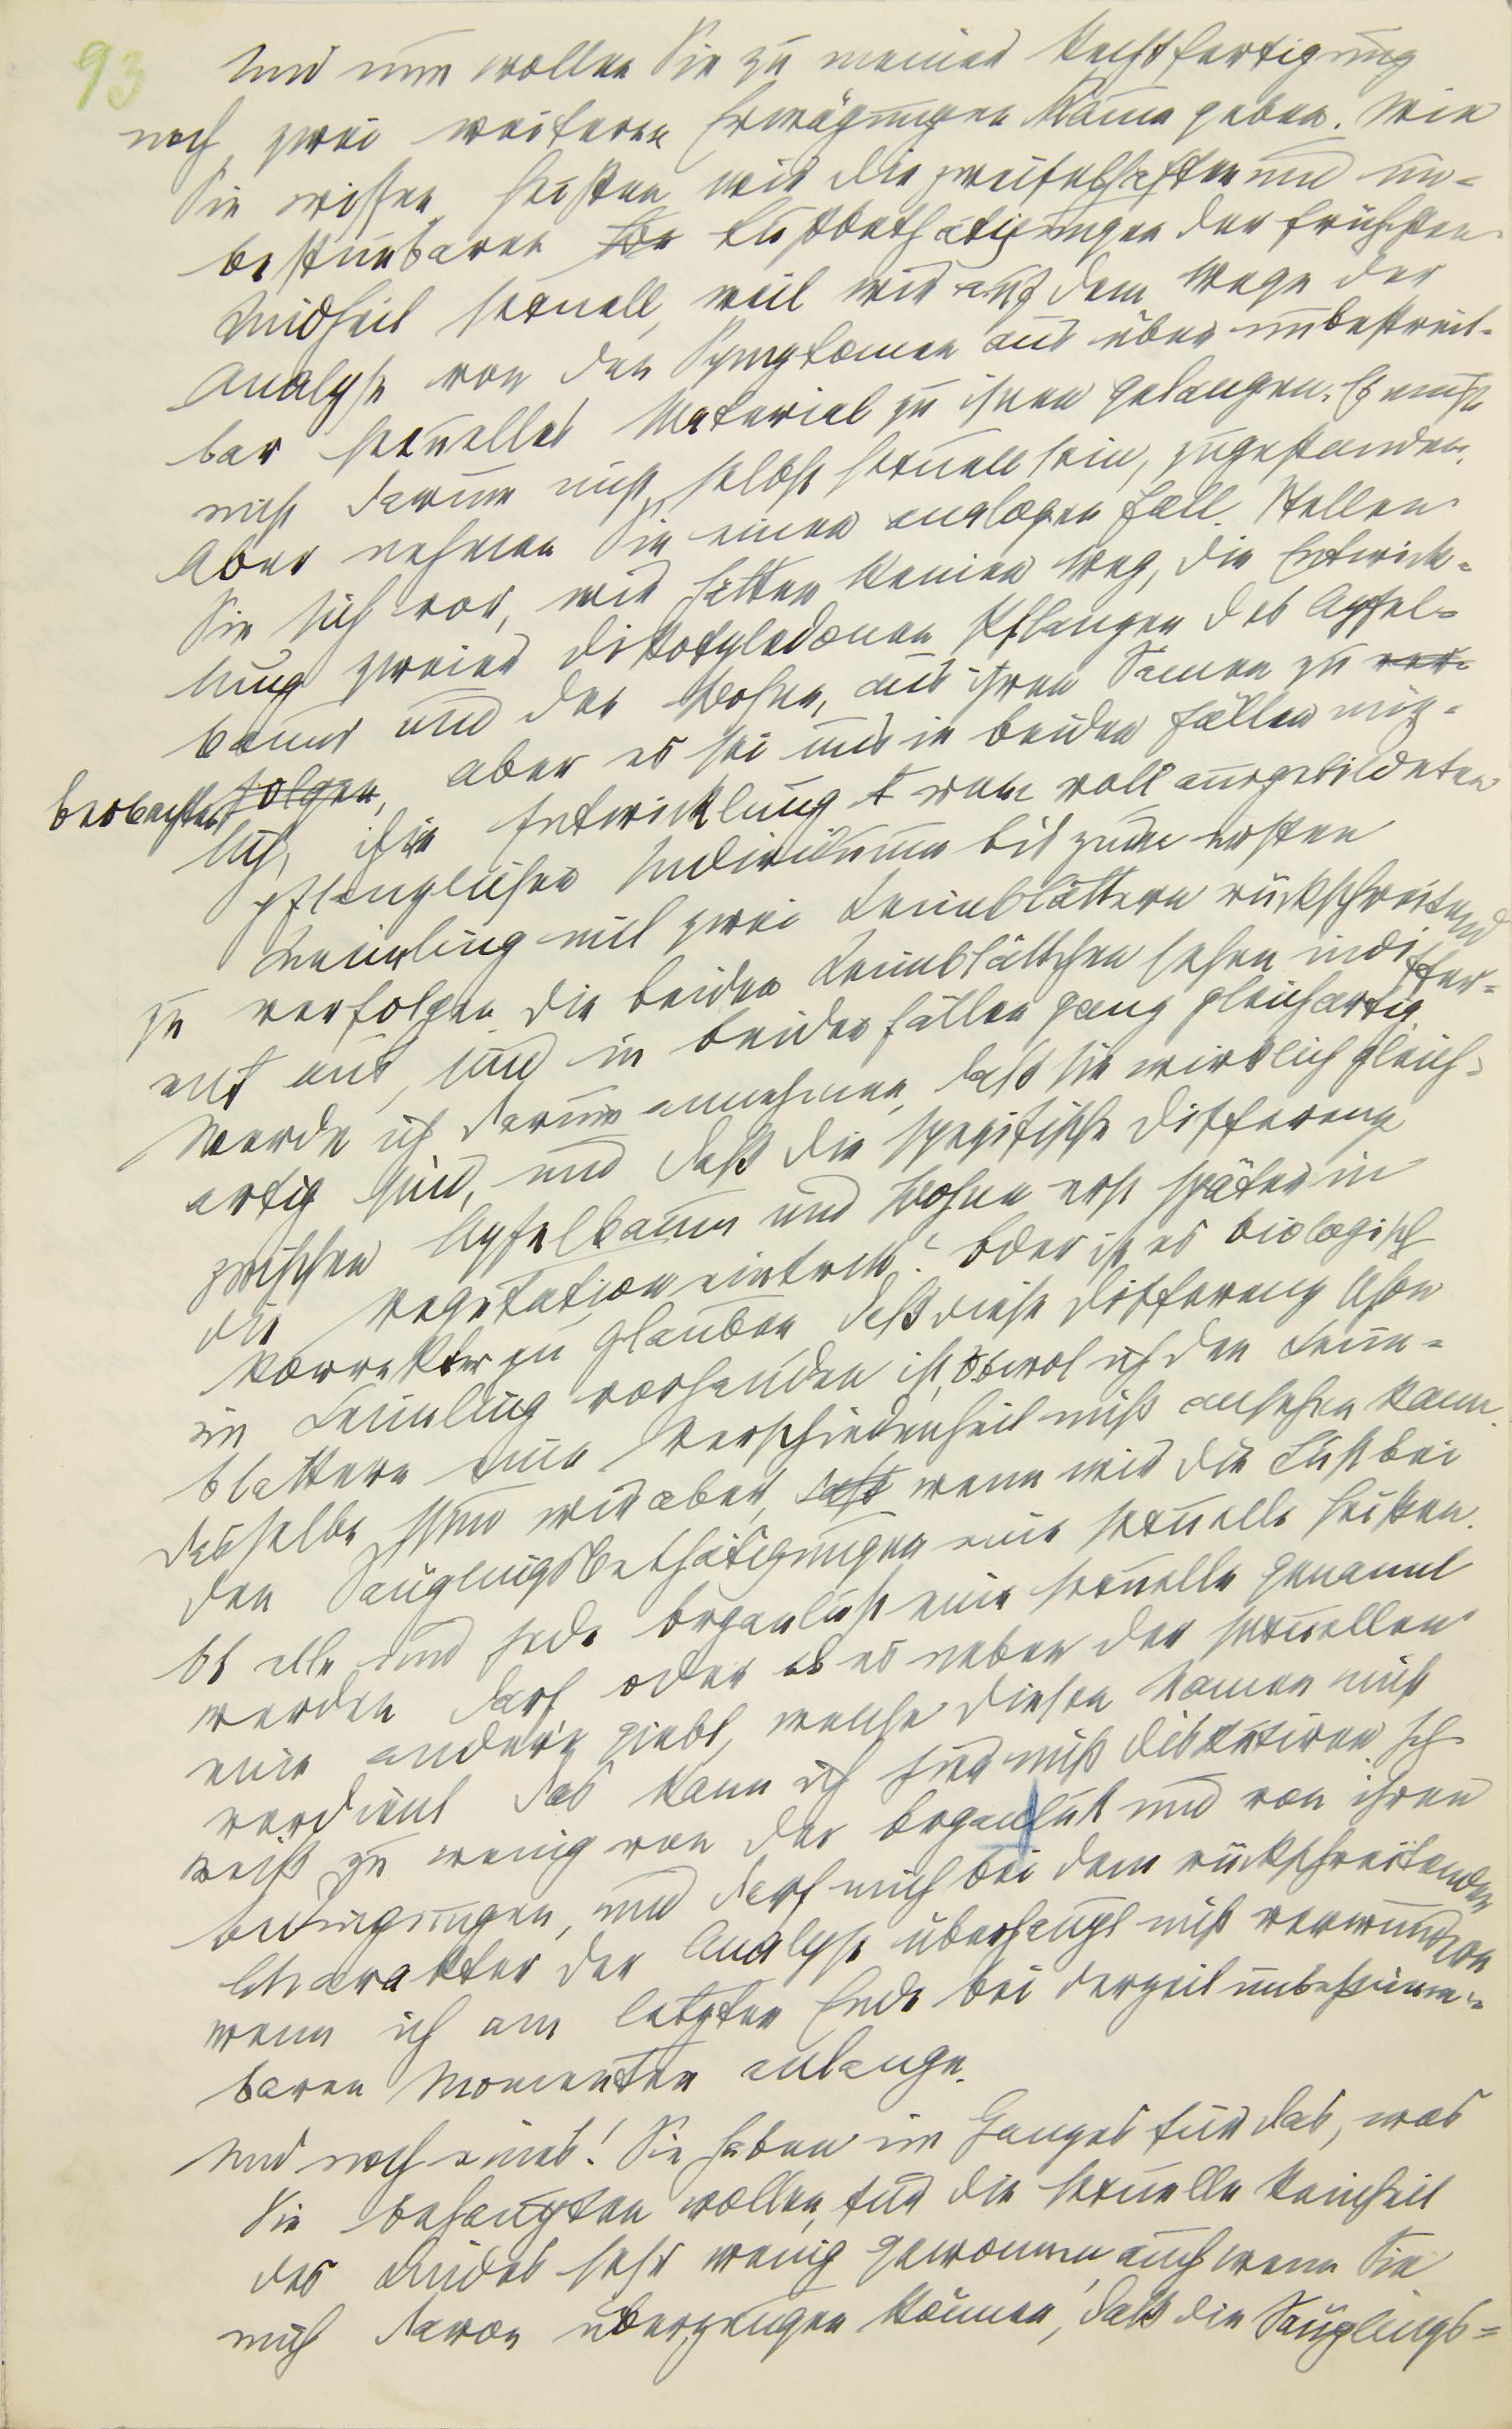 93
Und nun wollen Sie zu meiner Rechtfertigung
noch zwei weiteren Erwägungen Raum geben. Wie
Sie wissen, heißen wir die zweifelhaften und un-
bestimmbaren Lustbethätigungen der frühesten
Kindheit sexuell, weil wir auf dem Wege der
Analyse von den Symptomen aus über unbestreit-
bar sexuelles Material zu ihnen gelangen. Es muß
nicht darum auch selbst sexuell sein, zugestanden.
Aber nehmen Sie einen analogen Fall. Stellen
Sie sich vor, wir hätten keinen Weg, die Entwick-
lung zweier dikotyledonen Pflanzen des Apfel-
baums und der Bohne, aus ihren Samen zu ver-
beobachten folgen, aber es sei uns in beiden Fällen mög-
lich, ihre Entwicklung vom voll ausgebildeten
pflanzlichen Individuum bis zum ersten
Keimling mit zwei Keimblättern rückschreitend
zu verfolgen. Die beiden Keimblättchen sehen indiffer-
ent aus, sind in beiden Fällen ganz gleichartig.
Werde ich darum annehmen, daß sie wirklich gleich-
artig sind, und daß die spezifische Differenz
zwischen Apfelbaum und Bohne erst später in
die Vegetation eintritt? Oder ist es biologisch
korrekter zu glauben, daß diese Differenz schon
im Keimling vorhanden ist, obwol ich den Keim-
blättern eine Verschiedenheit nicht ansehen kann.
Dasselbe thun wir aber, daß wenn wir die Lust bei
den Säuglingsbethätigungen eine sexuelle heißen.
Ob alle und jede Organlust eine sexuelle genannt
werden darf oder ob es neben der sexuellen
eine andere giebt, welche diesen Namen nicht
verdient, das kann ich hier nicht diskutiren. Ich
weiß zu wenig von der Organlust und von ihren
Bedingungen, und darf mich bei dem rückschreitenden
Charakter der Analyse überhaupt nicht verwundern
wenn ich am letzten Ende bei derzeit unbestimm-
baren Momenten anlange.
Und noch eines! Sie haben im Ganzen für das, was
Sie behaupten wollen, für die sexuelle Reinheit
des Kindes sehr wenig gewonnen, auch wenn Sie
mich davon überzeugen können, daß die Säuglings-